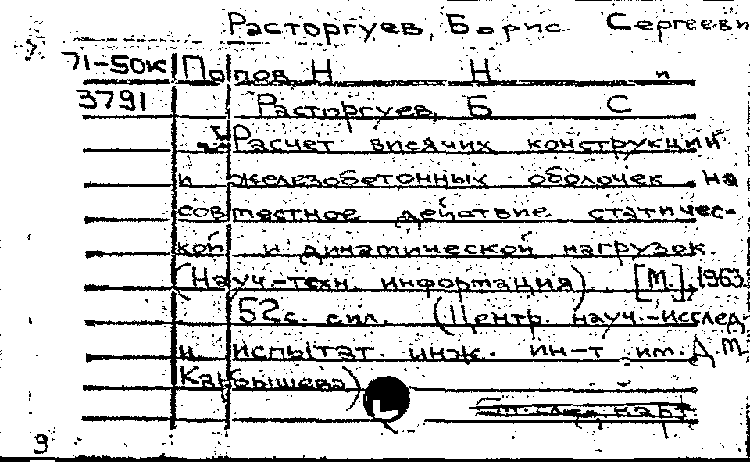 Расторгуев, Борис Сергеевич
71-50к Попов Н Н и
3791 Расторгуев, Б С
Расчет висячих конструкций
и железобетонных оболочек на
совместное действие статичес-
кой и динамической нагрузок.
(Науч.-техн. информация). [М.], 1963
52с. с ил. (Центр. науч.-исслед.
и испытат. инж. ин-т им. Д.М.
Карбышева)
9